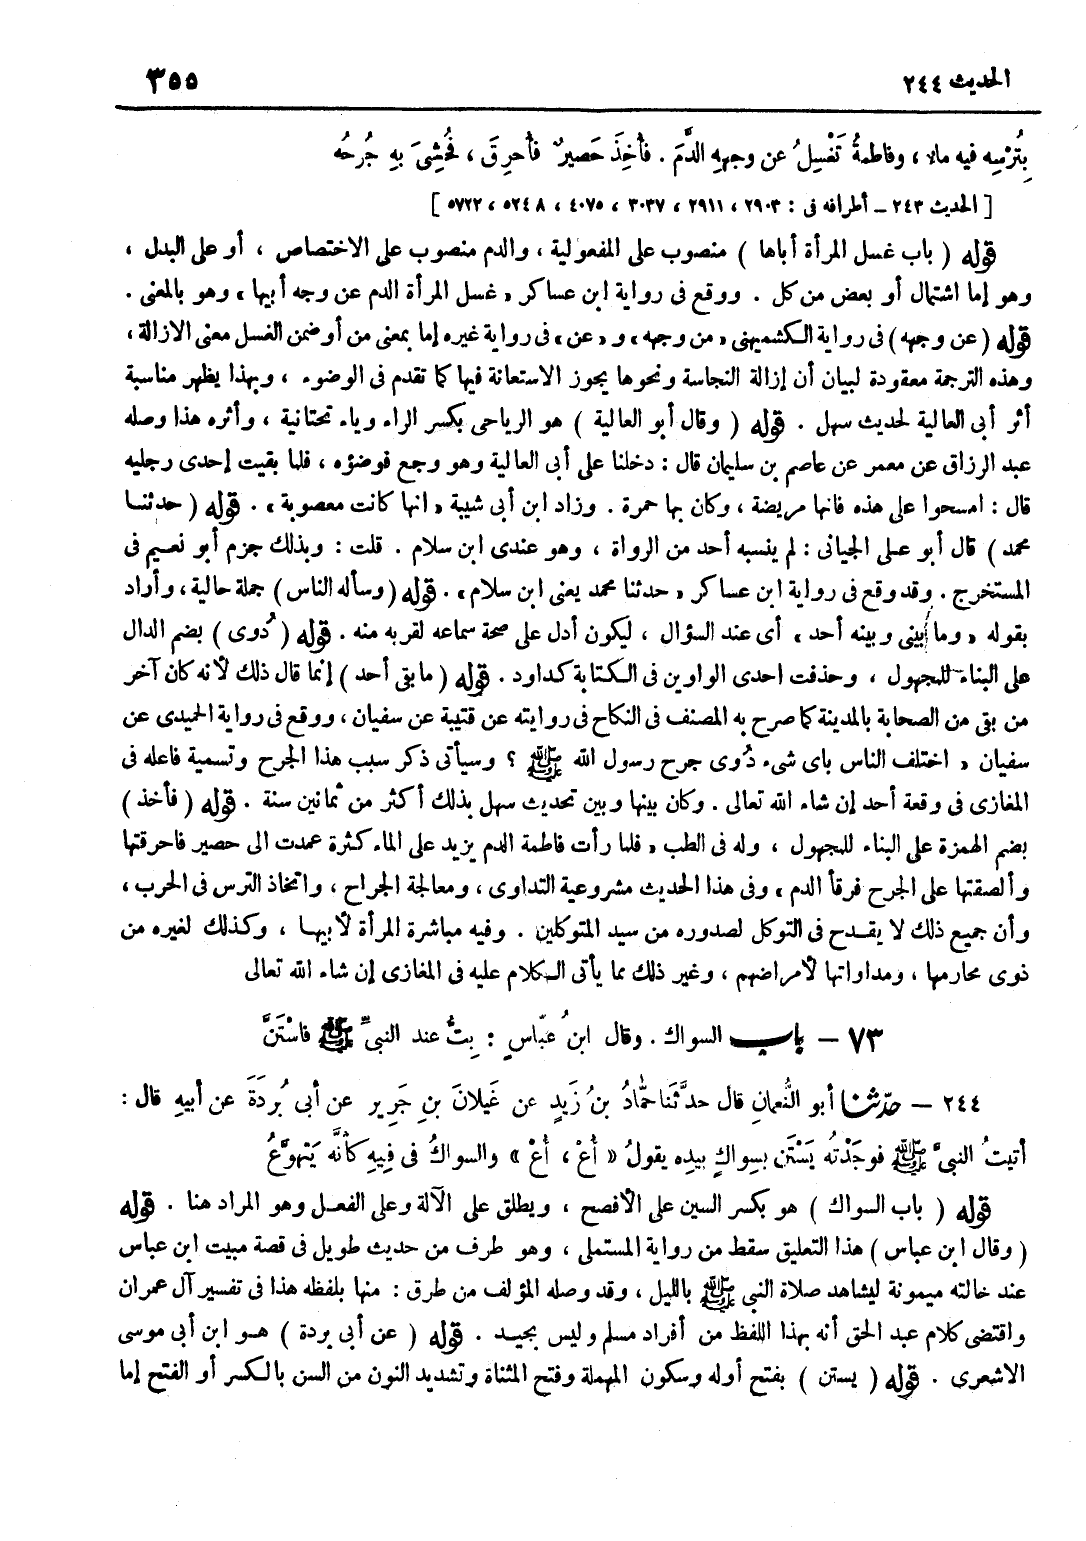 الحديث ٢٤٤ ٣٥٥
بِتُرْسِه فيه ماء ، وفاطمةُ تَغْسِلُ عن وجههِ الدَّمَ . فأُخِذَ حَصيرٌ فأُحرِقَ ، فحُشِىَ بهِ جُرحُه
[ الحديث ٢٤٣ – أطرافه فى : ٢٩٠٣ ، ٢٩١١ ، ٣٠٣٧ ، ٤٠٧٥ ، ٥٢٤٨ ، ٥٧٢٢ ]
قوله ( باب غسل المرأة أباها ) منصوب على المفعولية ، والدم منصوب على الاختصاص ، أو على البدل ،
وهو إما اشتمال أو بعض من كل . ووقع فى رواية ابن عساكر « غسل المرأة الدم عن وجه أبيها » وهو بالمعنى .
قوله ( عن وجهه ) فى رواية الكشميهنى « من وجهه » و « عن » فى رواية غيره إما بمعنى من أو ضمن الغسل معنى الازالة ،
وهذه الترجمة معقودة لبيان أن إزالة النجاسة ونحوها يجوز الاستعانة فيها كما تقدم فى الوضوء ، وبهذا يظهر مناسبة
أثر أبى العالية لحديث سهل . قوله ( وقال أبو العالية ) هو الرياحى بكسر الراء وياء تحتانية ، وأثره هذا وصله
عبد الرزاق عن معمر عن عاصم بن سليمان قال : دخلنا على أبى العالية وهو وجع فوضؤه ، فلما بقيت إحدى رجليه
قال : امسحوا على هذه فانها مريضة ، وكان بها حمرة . وزاد ابن أبى شيبة « انها كانت معصوبة » . قوله ( حدثنا
محمد ) قال أبو على الجيانى : لم ينسبه أحد من الرواة ، وهو عندى ابن سلام . قلت : وبذلك جزم أبو نعيم فى
المستخرج . وقد وقع فى رواية ابن عساكر « حدثنا محمد يعنى ابن سلام » . قوله ( وسأله الناس ) جملة حالية ، وأراد
بقوله « وما بينى وبينه أحد » أى عند السؤال ، ليكون أدل على صحة سماعه لقربه منه . قوله ( دُوى ) بضم الدال
على البناء للمجهول ، وحذفت احدى الواوين فى الكتابة كداود . قوله ( ما بقى أحد ) إنما قال ذلك لأنه كان آخر
من بقى من الصحابة بالمدينة كما صرح به المصنف فى النكاح فى روايته عن قتيبة عن سفيان ، ووقع فى رواية الحميدى عن
سفيان « اختلف الناس باى شىء دُوى جرح رسول الله ﷺ ؟ وسيأتى ذكر سبب هذا الجرح وتسمية فاعله فى
المغازى فى وقعة أحد إن شاء الله تعالى . وكان بينها وبين تحديث سهل بذلك أكثر من ثمانين سنة . قوله ( فأخذ )
بضم الهمزة على البناء للمجهول ، وله فى الطب « فلما رأت فاطمة الدم يزيد على الماء كثرة عمدت الى حصير فاحرقتها
وألصقتها على الجرح فرقأ الدم » وفى هذا الحديث مشروعية التداوى ، ومعالجة الجراح ، واتخاذ الترس فى الحرب ،
وأن جميع ذلك لا يقدح فى التوكل لصدوره من سيد المتوكلين . وفيه مباشرة المرأة لأبيها ، وكذلك لغيره من
ذوى محارمها ، ومداواتها لأمراضهم ، وغير ذلك مما يأتى الكلام عليه فى المغازى إن شاء الله تعالى
٧٣ – باب السواك . وقال ابنُ عبّاسٍ : بِتُّ عند النبىِّ ﷺ فاسْتَنَّ
٢٤٤ – حدّثنا أبو النُّعمانِ قال حدَّثَنا حمّادُ بنُ زَيدٍ عن غَيلانَ بنِ جَريرٍ عن أبى بُردَةَ عن أبيهِ قال :
أتيتُ النبىَّ ﷺ فوجَدْتُه يَسْتَن بسِواكٍ بيدِه يقولُ « أُعْ ، أُعْ » والسواكُ فى فِيهِ كأنَّه يَتهوَّعُ
قوله ( باب السواك ) هو بكسر السين على الأفصح ، ويطلق على الآلة وعلى الفعل وهو المراد هنا . قوله
( وقال ابن عباس ) هذا التعليق سقط من رواية المستملى ، وهو طرف من حديث طويل فى قصة مبيت ابن عباس
عند خالته ميمونة ليشاهد صلاة النبى ﷺ بالليل ، وقد وصله المؤلف من طرق : منها بلفظه هذا فى تفسير آل عمران
واقتضى كلام عبد الحق أنه بهذا اللفظ من أفراد مسلم وليس بجيد . قوله ( عن أبى بردة ) هو ابن أبى موسى
الاشعرى . قوله ( يستن ) بفتح أوله وسكون المهملة وفتح المثناة وتشديد النون من السن بالكسر أو الفتح إما